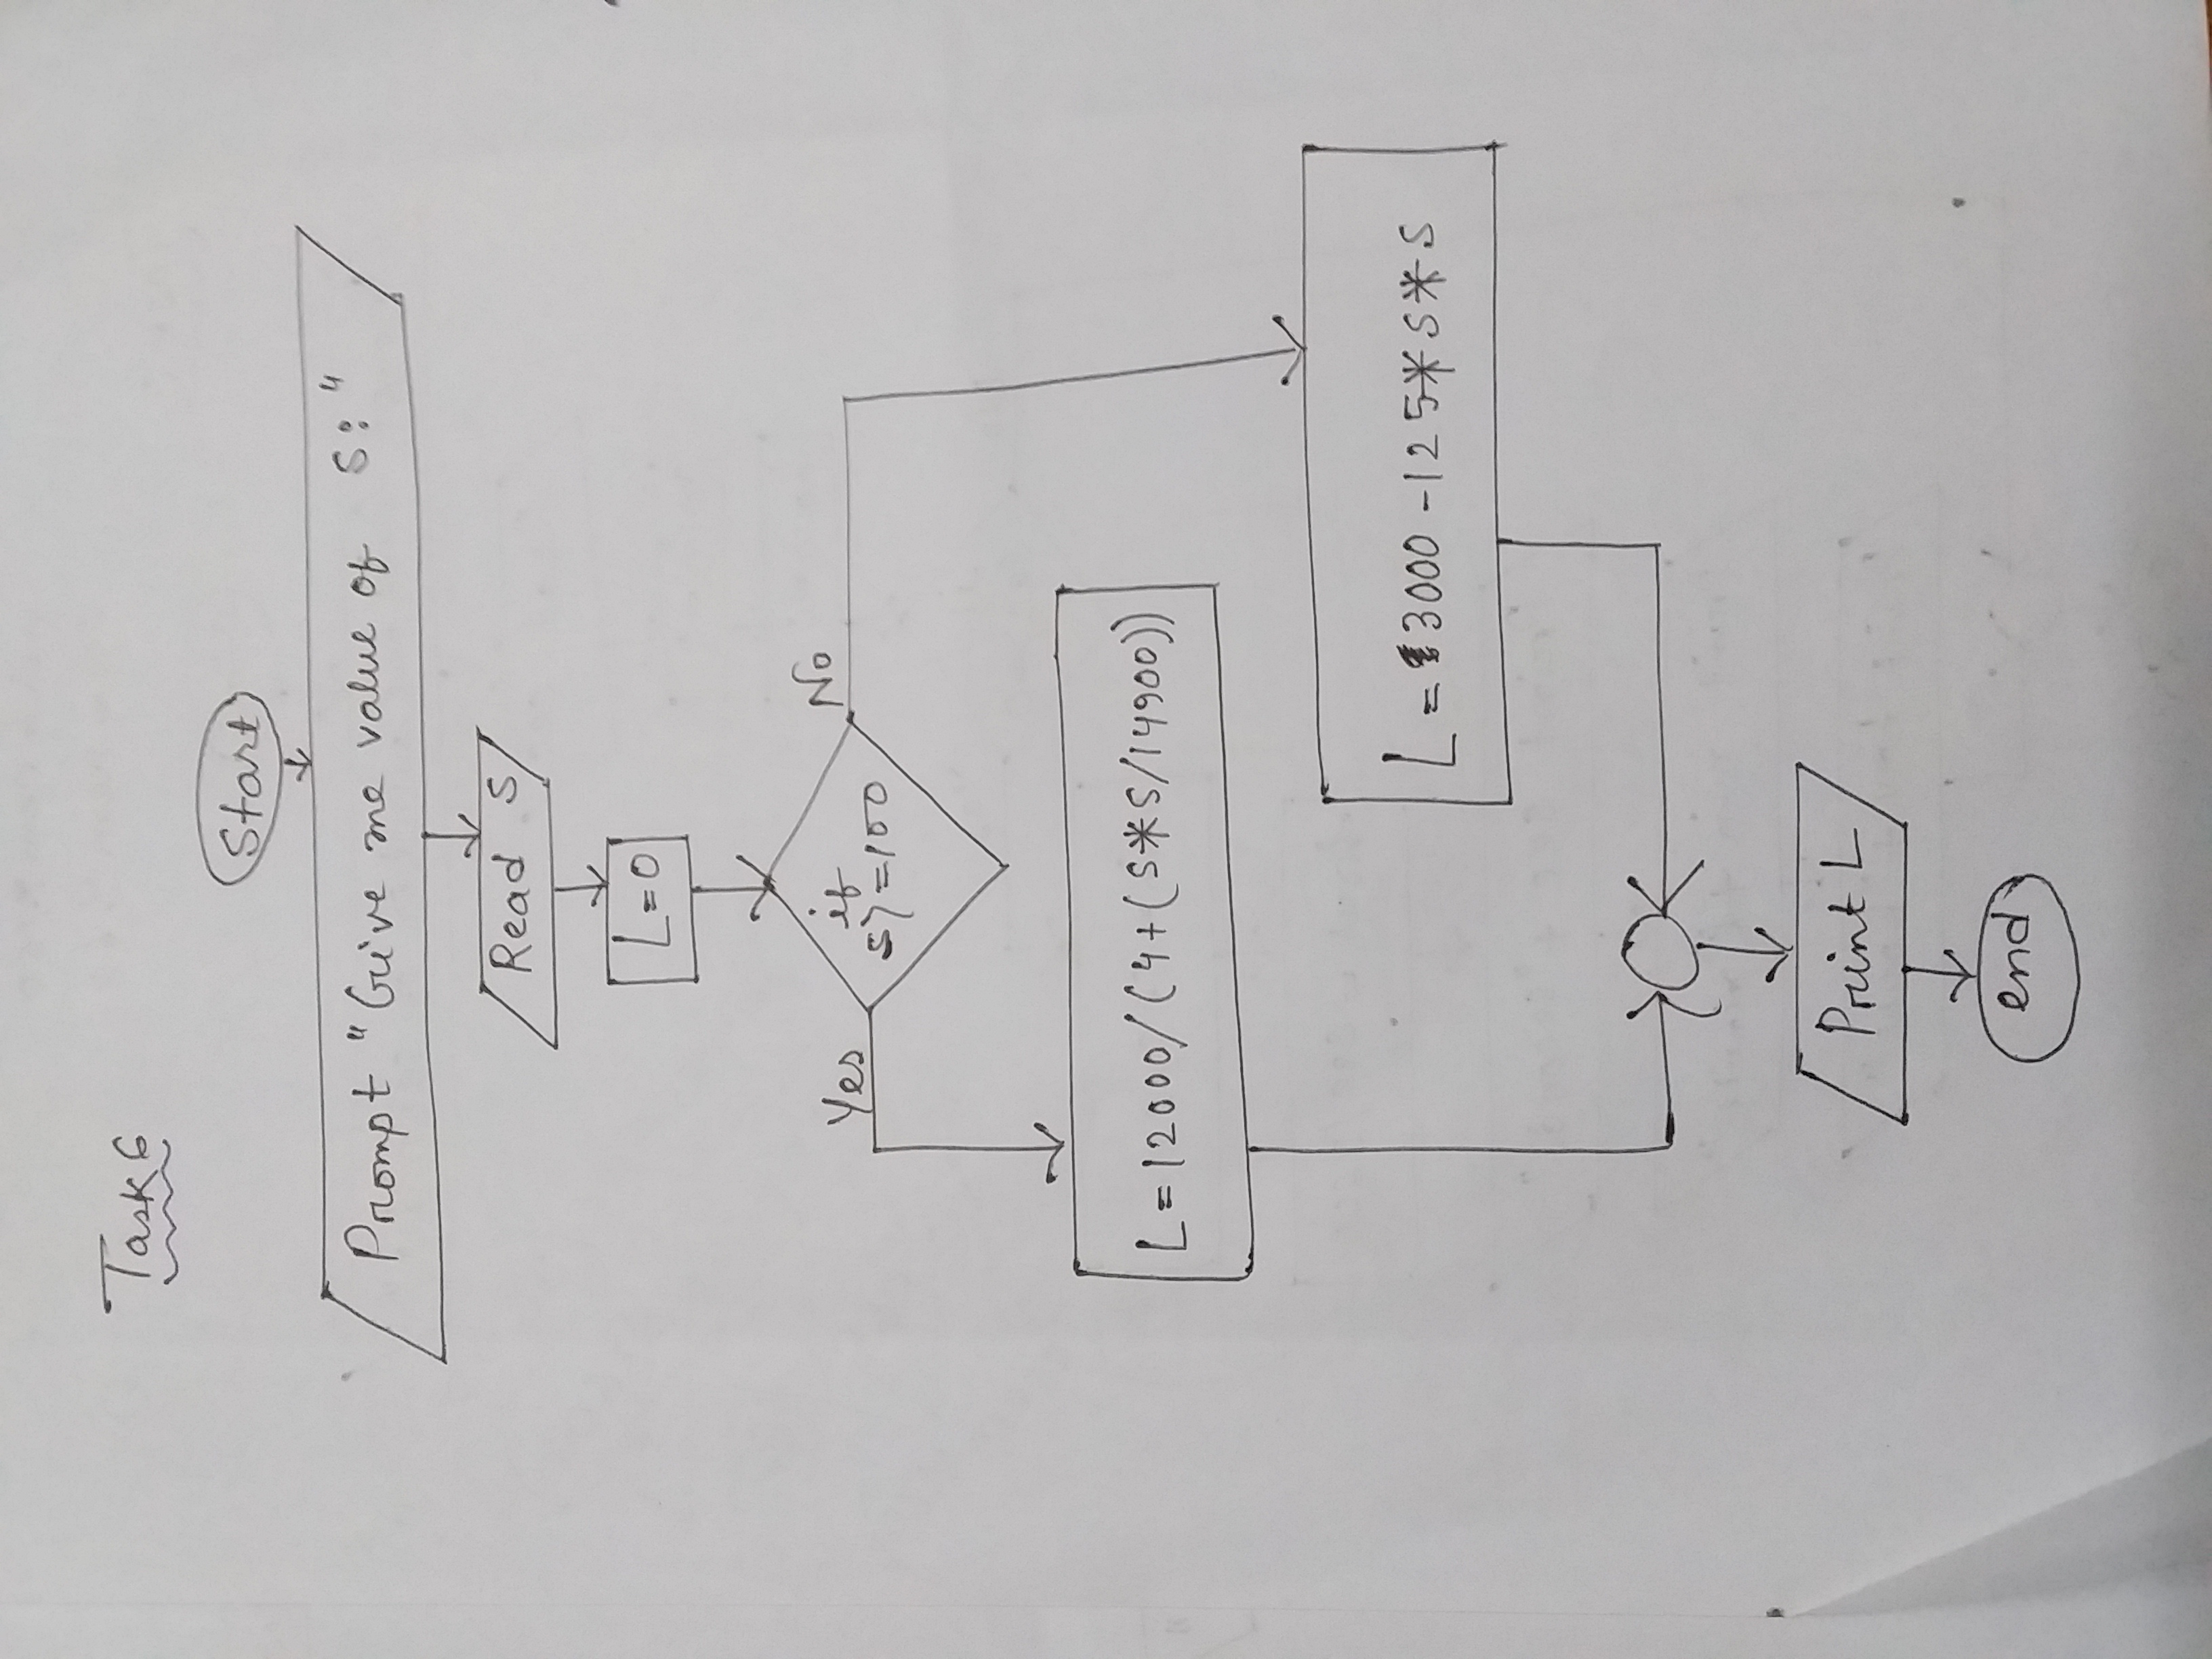 Task 6
Start
Prompt "Give me value of S:"
Read S
L=0
Yes
No
if
S>=100
L=12000/(4+(S*S/14900))
L=3000-125*S*S
Print L
end